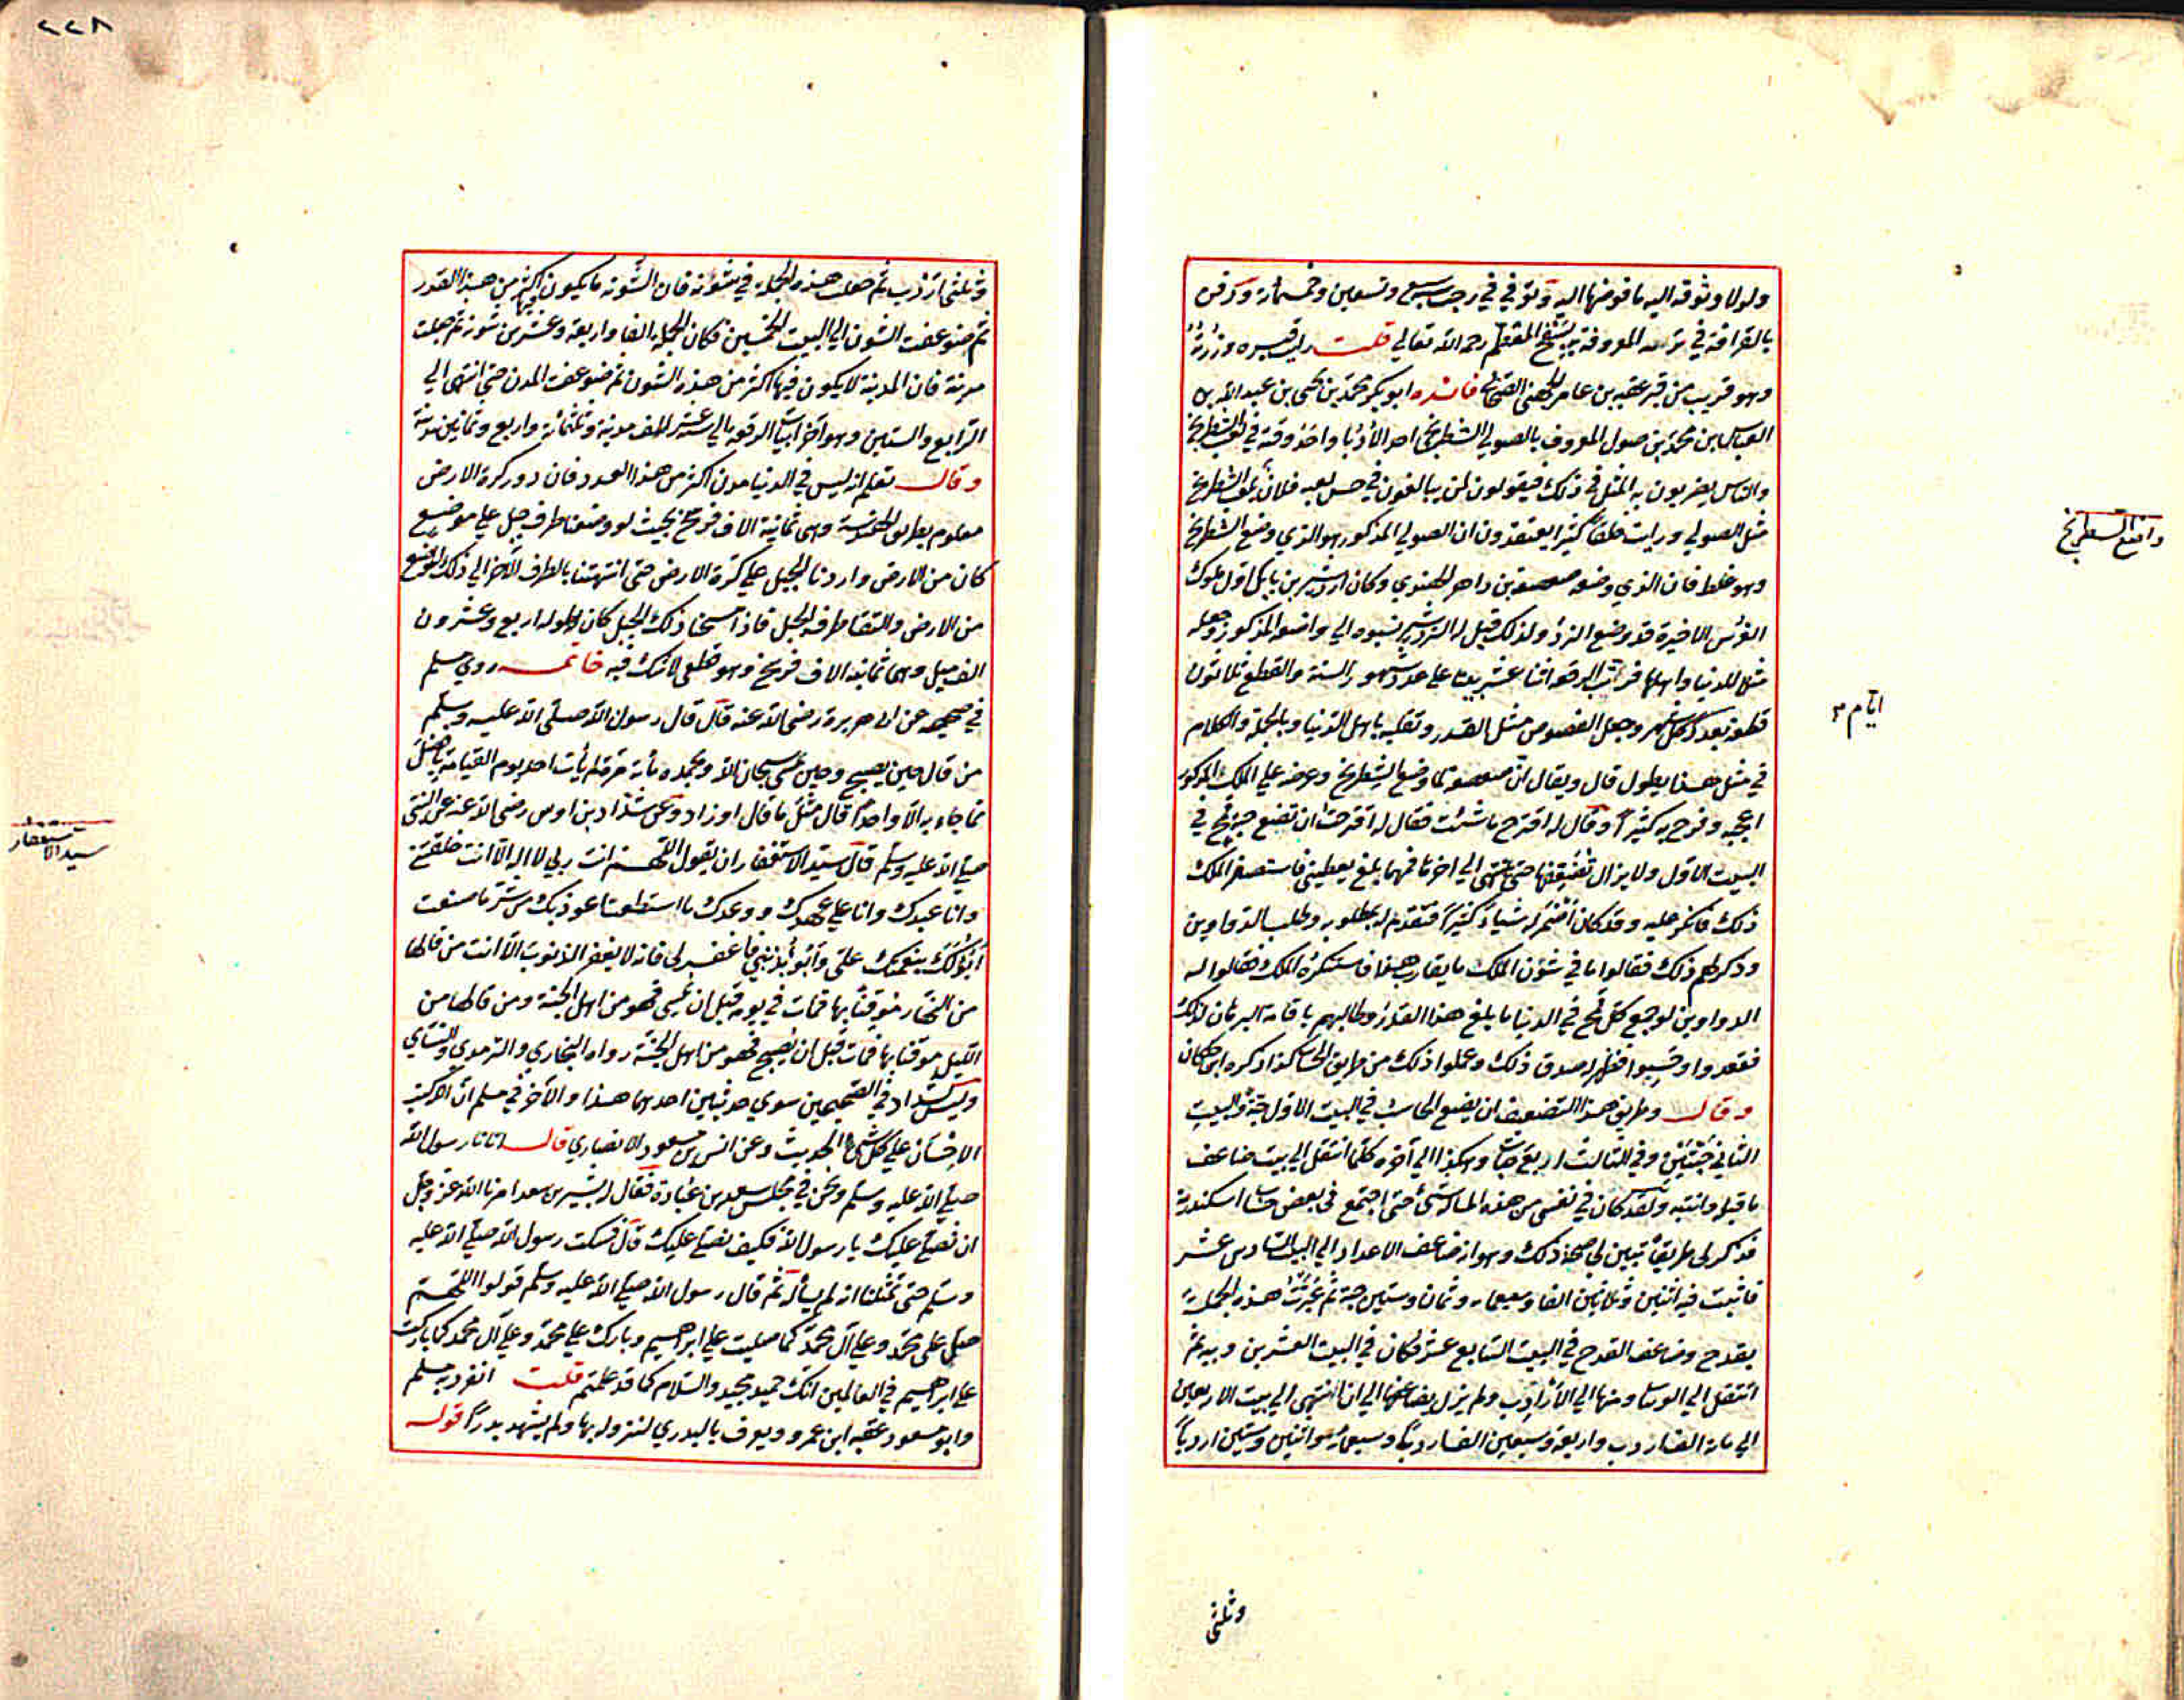 ولولا وثوقه اليه ما فوضها اليه وتوفي في رجب سبع وتسعين وخمسمائة ودفن
بالقرافة في تربته المعروفة بسفح المقطم رحمه الله تعالي قلت رايت قبره وزرته
وهو قريب من قبر عقبه بن عامر الجهني الصحابي فائده ابو بكر محمد بن يحيى بن عبد الله بن
العباس بن محمد بن صول المعروف بالصولي الشطرنجي احد الأدبا واحذ وقته في لعب الشطرنج
والناس يضربون به المثل في ذلك فيقولون لمن يبالغون في حسن لعبه فلان يلعب الشطرنج
مثل الصولي ورايت خلقا كثيرا يعتقدون ان الصولي المذكور هو الذي وضع الشطرنج
وهو غلط فان الذي وضعه صصه بن داهر الهندي وكان اردشير بن بابك اول ملوك
الفرس الاخيرة قد وضع النرد ولذلك قيل له النردشير نسبوه الي واضعه المذكور وجعله
مثلا للدنيا واهلها فرتب الرقعه اثنا عشر بيتا علي عدد شهور السنة والقطع ثلاثون
قطعة بعدد كل شهر وجعل الفصوص مثل القدر وتقلبه باهل الدنيا وبالجملة والكلام
في مثل هذا يطول قال ويقال ان صصه لما وضع الشطرنج وعرضه علي الملك المذكور
اعجبه وفرح به كثيرا وقال له اقترح ما شئت فقال له اقترحت ان تضع حبة قمح في
البيت الاول ولا يزال تضعفها حتي تنتهي الي اخرها فمهما بلغ يعطيني فاستصغر الملك
ذلك فانكر عليه وقد كان اضمر له شيأ كثيرا فتقدم له بمطلوبه وطلب الدواوين
وذكر لهم ذلك فقالوا ما في شؤن الملك ما يقارب هذا فاستنكره الملك فقالوا له
الدواوين لو جمع كل قمح في الدنيا ما بلغ هذا القدر وطالبهم باقامة البرهان لذلك
فقعدوا وحسبوا فظهر له صدق ذلك وعملوا ذلك من طريق الحساب كذا ذكره ابن خلكان
وقال وطريق هذا التضعيف ان يضع الحاسب في البيت الاول حبة والبيت
الثاني حبتين وفي الثالث اربع حبات وهكذا الي آخره كلما انتقل الي بيت ضاعف
ما قبله واثبته ولقد كان في نفسي من هذه المبالغة شئ حتي اجتمع في بعض حساب اسكندرية
فذكر لي طريقا تبين لي صحة ذلك وهو انه ضاعف الاعداد الي البيت السادس عشر
فاثبت فيه اثنين وثلاثين الفا وسبعمائة وثمان وستين حبة ثم عبرت هذه الجملة
بقدح وضاعف القدح في البيت السابع عشر فكان في البيت العشرين ويبه ثم
انتقل الي الويبات ومنها الي الأرادب ولم يزل يضاعفها الي ان انتهي الي بيت الاربعين
الي مائة الف اردب واربعة وسبعين الف اردبا وسبعمائة واثنين وستين اردبا
واضع الشطرنج
ايام ٣
وثلثي
٢٢٨
وثلثي اردب ثم جعلت هذه الجملة في شونة فان الشونة ما يكون فيها اكثر من هذا القدر
ثم ضوعفت الشون الي البيت الخمسين فكان الجملة الفا واربعة وعشرين شونة ثم جعلت
مدينة فان المدينة لا يكون فيها اكثر من هذه الشون ثم ضوعفت المدن حتي انتهي الي
الرابع والستين وهو آخر ابيات الرقعه الي ستة عشر الف مدينة وثلثمائة واربع وثمانين مدينة
وقال تعلم انه ليس في الدنيا مدن اكثر من هذا العدد فان دور كرة الارض
معلوم بطريق الهندسة وهي ثمانية الاف فرسخ بحيث لو وضعنا طرف حبل علي موضع
كان من الارض وادرنا الحبل علي كرة الارض حتي انتهينا بالطرف الآخر الي ذلك الموضع
من الارض والتقا طرفه الحبل فاذا مسحنا ذلك الحبل كان طوله اربع وعشرون
الف ميل وهي ثمانية الاف فرسخ وهو قطعي لا شك فيه خاتمه روي مسلم
في صحيحه عن ابي هريرة رضي الله عنه قال قال رسول الله صلي الله عليه وسلم
من قال حين يصبح وحين يمسي سبحان الله وبحمده مائة مرة لم يأت احد يوم القيامة بافضل
مما جاء به الا واحدا قال مثل ما قال او زاد وعن شداد بن اوس رضي الله عنه عن النبي
صلي الله عليه وسلم قال سيد الاستغفار ان يقول اللهم انت ربي لا اله الا انت خلقتني
وانا عبدك وانا علي عهدك ووعدك ما استطعت اعوذ بك من شر ما صنعت
أبوء لك بنعمتك علي وابوء بذنبي فاغفر لي فانه لا يغفر الذنوب الا انت من قالها
من النهار موقنا بها فمات في يومه قبل ان يمسي فهو من اهل الجنة ومن قالها من
الليل موقنا بها فمات قبل ان يصبح فهو من اهل الجنة رواه البخاري والترمذي والنساي
وليس لشداد في الصحيحين سوي حديثين احدهما هذا والآخر في مسلم ان الله كتب
الاحسان علي كل شئ الحديث وعن ابي مسعود الانصاري قال اتانا رسول الله
صلي الله عليه وسلم ونحن في مجلس سعد بن عبادة فقال له بشير بن سعد امرنا الله عز وجل
ان نصلي عليك يا رسول الله فكيف نصلي عليك قال فسكت رسول الله صلي الله عليه
وسلم حتي تمنينا انه لم يسأله ثم قال رسول الله صلي الله عليه وسلم قولوا اللهم
صل علي محمد وعلي آل محمد كما صليت علي ابراهيم وبارك علي محمد وعلي آل محمد كما باركت
علي ابراهيم في العالمين انك حميد مجيد والسلام كما قد علمتم قلت انفرد به مسلم
وابو مسعود عقبه ابن عمرو ويعرف بالبدري لنزوله بها ولم يشهد بدرا قوله
سيد الاستغفار